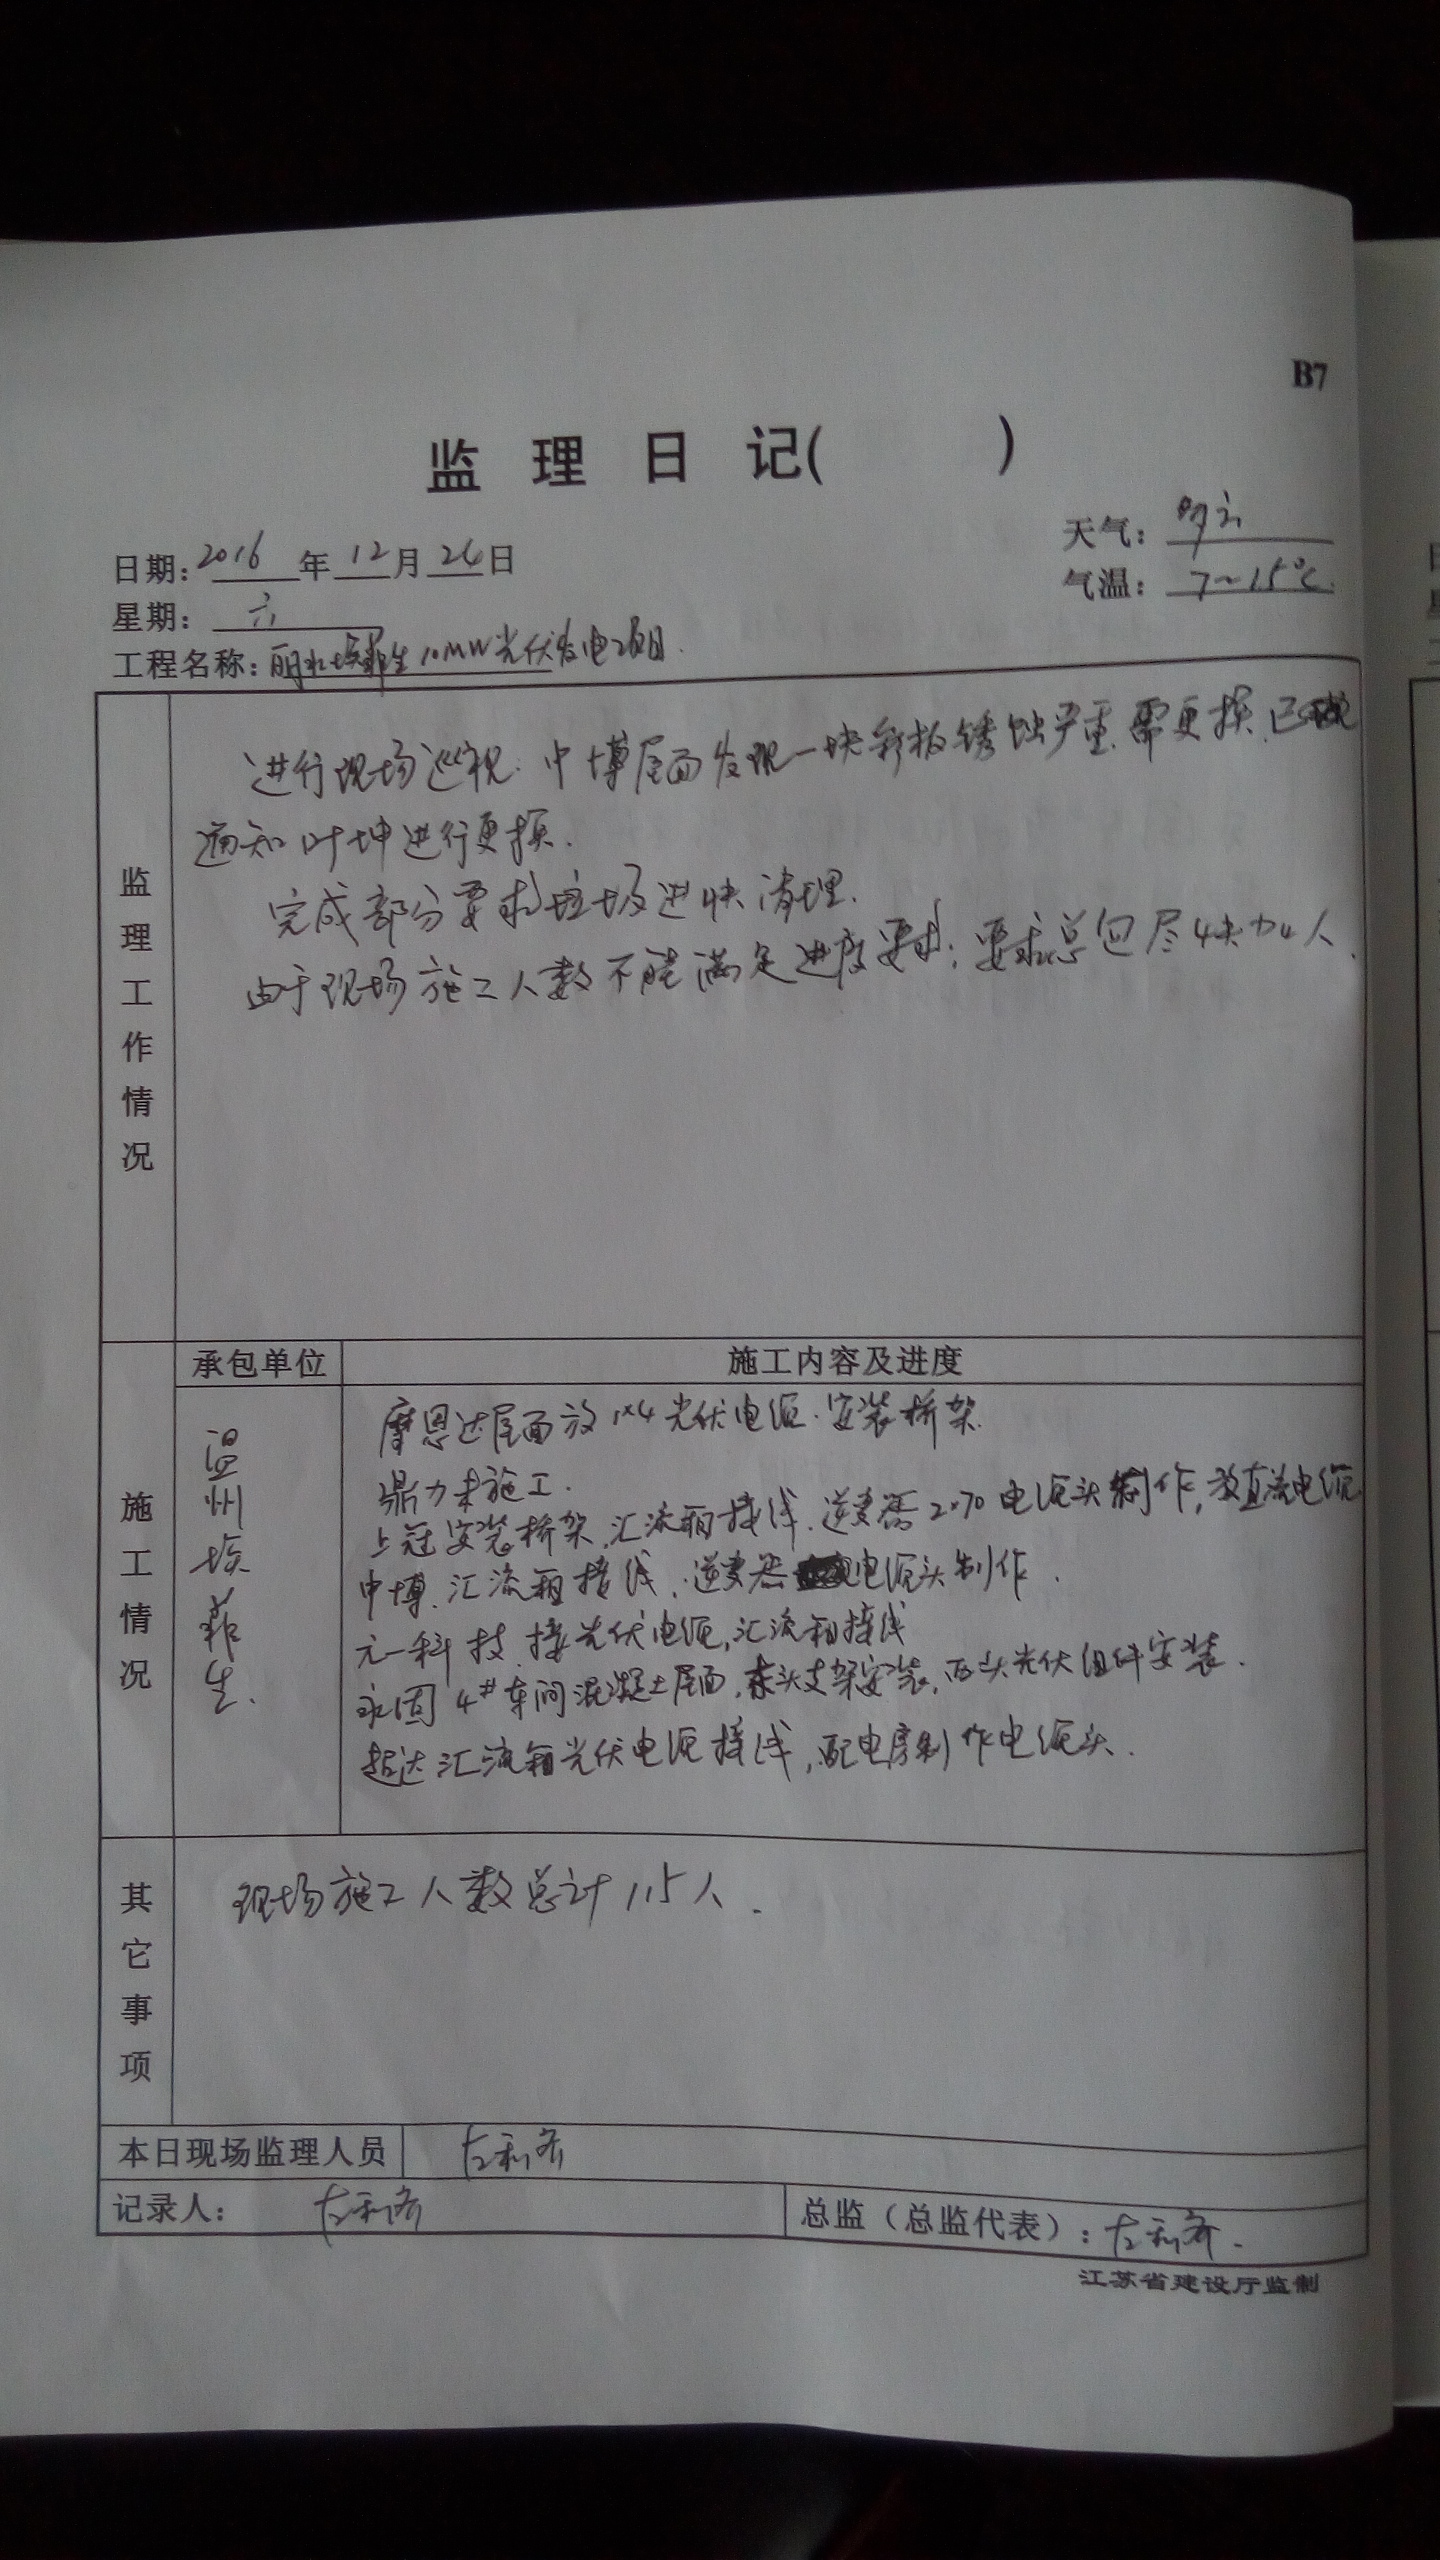 B7
监理日记( )
日期: 2016 年 12 月 24 日
天气: 多云
星期: 六
气温: 7~15℃
工程名称: 丽水埃菲生10MW光伏发电项目.
监理工作情况
进行现场巡视. 中博屋面发现一块彩板锈蚀严重需更换.已
通知叶坤进行更换.
完成部分要求垃圾进快清理.
由于现场施工人数不能满足进度要求;要求总包尽快加人.
承包单位
施工内容及进度
施工情况
温州埃菲生.
摩恩达屋面放1×4光伏电缆.安装桥架.
鼎力未施工.
上冠安装桥架.汇流箱接线.逆变器2×70电缆头制作,放直流电缆
中博.汇流箱接线.逆变器电缆头制作.
元一科技.接光伏电缆,汇流箱接线
永固4#车间混凝土屋面,东头支架安装,西头光伏组件安装.
超达汇流箱光伏电缆接线,配电房制作电缆头.
其它事项
现场施工人数总计115人.
本日现场监理人员
记录人:
总监(总监代表):
江苏省建设厅监制